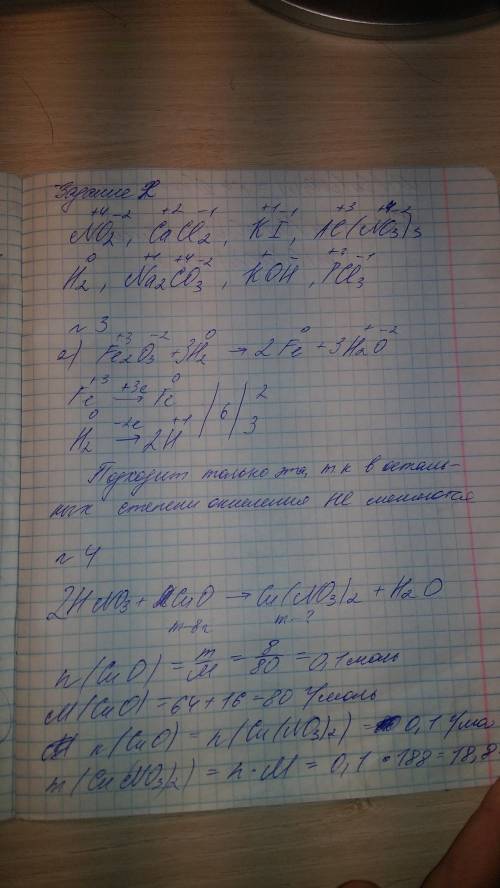 Задание 2
+4 -2 +2 -1 +1 -1 +3 +4 -2
NO2, CaCl2, KI, Al(NO3)3
0 +1 +4 -2 + - +3 -1
H2, Na2CO3, KOH, PCl3
№3
+3 -2 0 0 + -2
а) Fe2O3 + 3H2 → 2Fe + 3H2O
+3 +3e 0
Fe → Fe | 6 | 2
0 -2e +1
H2 → 2H 3
Подходит только эта, т.к в осталь-
ных степени окисления не меняются
№4
2HNO3 + CuO → Cu(NO3)2 + H2O
m=8г m-?
n(CuO) = m/M = 8/80 = 0,1 моль
M(CuO) = 64+16 = 80 г/моль
n(CuO) = n(Cu(NO3)2) = 0,1
m(Cu(NO3)2) = n·M = 0,1 · 188 = 18,8